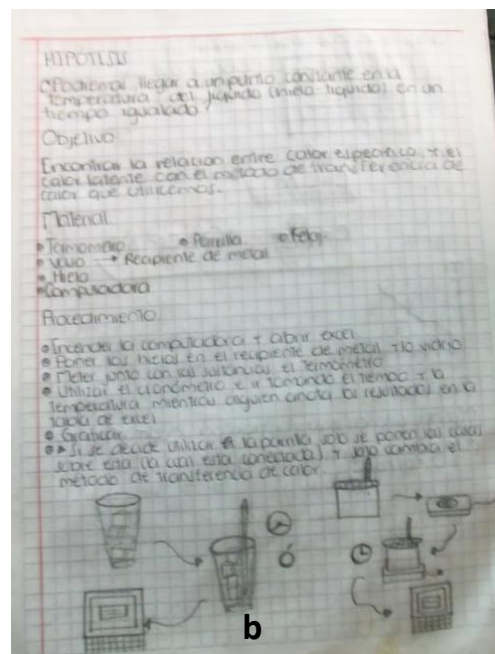 HIPÓTESIS
¿Podremos llegar a un punto constante en la
temperatura del líquido (hielo-líquido) en un
tiempo igualado?
Objetivo
Encontrar la relación entre calor específico, y el
calor latente con el método de transferencia de
calor que utilicemos.
Material
• Termómetro • Parrilla • Reloj
• Vaso → Recipiente de metal
• Hielo
• Computadora
Procedimiento
• Encender la computadora y abrir excel
• Poner los hielos en el recipiente de metal y/o vidrio
• Meter junto con las sustancias el termómetro
• Utilizar el cronómetro e ir tomando el tiempo y la
temperatura mientras alguien anota los resultados en la
tabla de excel
• Graficar
• Si se decide utilizar la parrilla solo se ponen las cosas
sobre esta (la cual esta conectada) y solo cambia el
método de transferencia de calor.
b